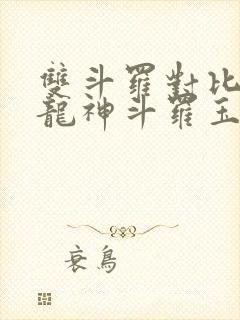 雙斗羅對比
龍神斗羅玉
衰鳥